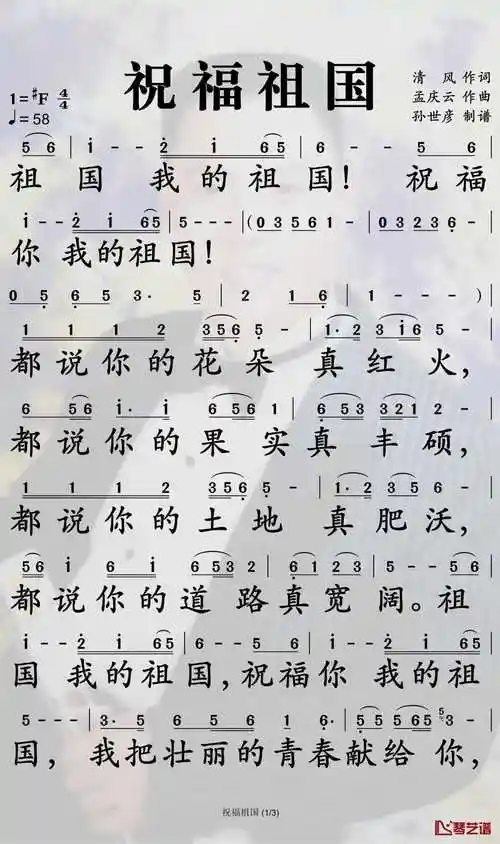 祝福祖国
1=♯F 4/4
♩=58
清 风 作词
孟庆云 作曲
孙世彦 制谱
5 6 | i - - 2 i 6 5 | 6 - - 5 6 |
祖 国 我 的 祖 国! 祝 福
i - - 2 i 6 5 | 5 - - - | (0 3 5 6 1 - | 0 3 2 3 6 - |
你 我 的 祖 国!
0 5 6 5 3· 5 | 2 1 6 | 1 - - -) |
1 1 1 2 3 5 6 5 - | 1· 2 3 i 6 5 - |
都 说 你 的 花 朵 真 红 火,
6 5 6 i· i | 6 5 6 - | 6 5 3 3 2 1 2 - |
都 说 你 的 果 实 真 丰 硕,
1 1 1 2 | 3 5 6 5 - | 1· 2 3 5 6 - |
都 说 你 的 土 地 真 肥 沃,
都 说 你 的 道 路 真 宽 阔。祖
i - - 2 i 6 5 | 6 - 5 6 | i - - 2 i 6 5 |
国 我 的 祖 国,祝 福 你 我 的 祖
国, 我 把 壮 丽 的 青 春 献 给 你,
祝福祖国 (1/3)
琴艺谱